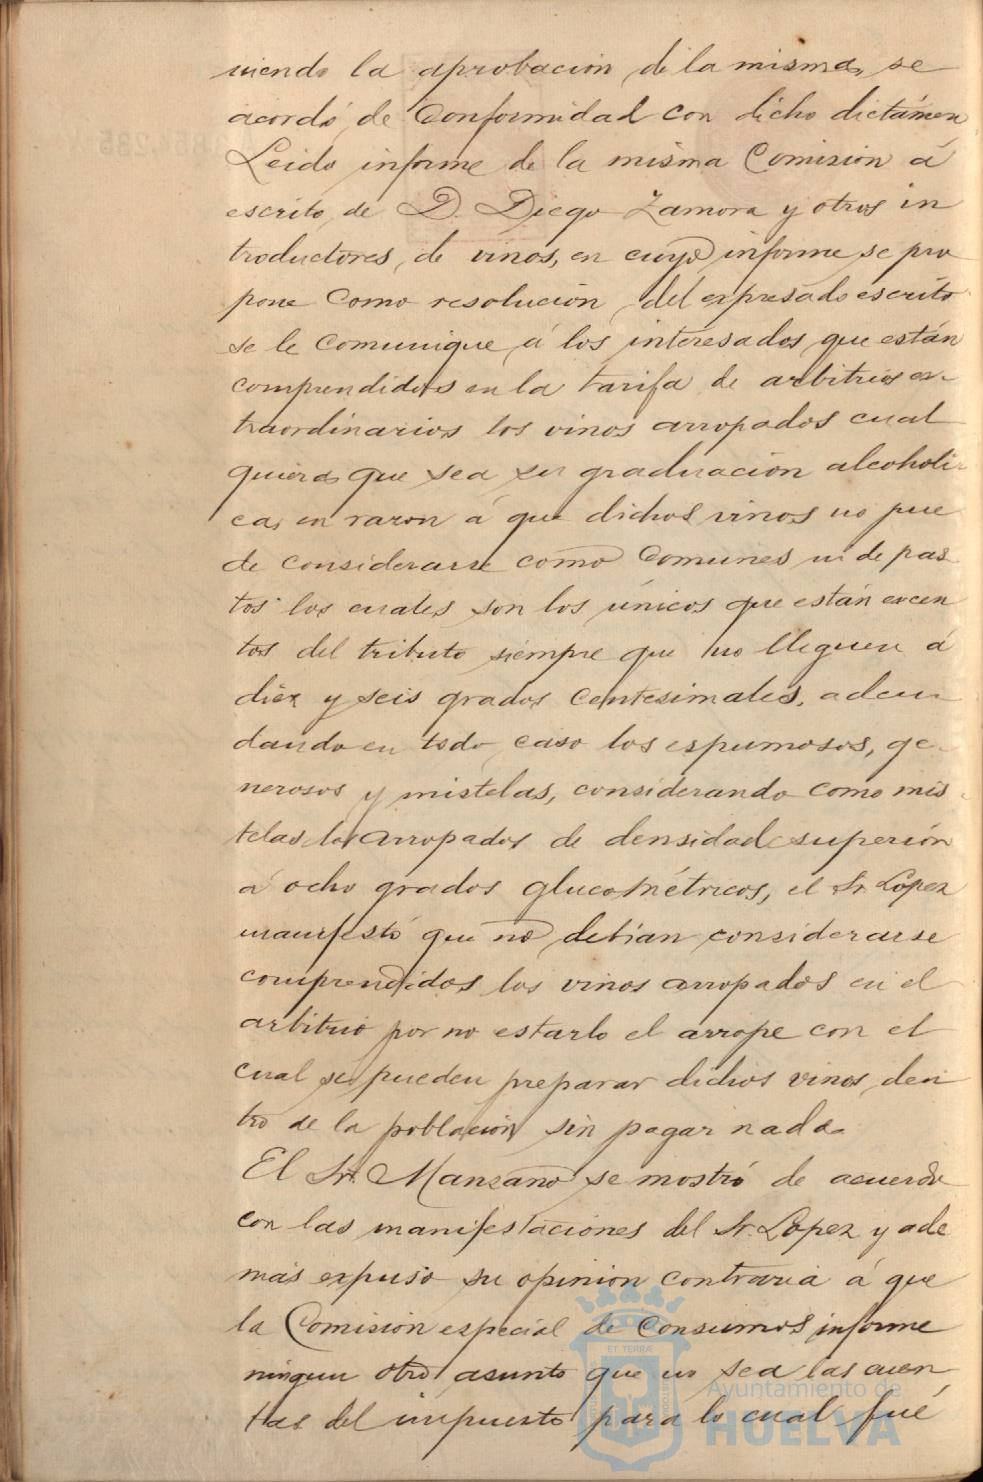 niendo la aprobacion de la misma, se
acordó de Conformidad con dicho dictámen
Leido informe de la misma Comision á
escrito de D. Diego Zamora y otros in
troductores de vinos, en cuyo informe se pro
pone Como resolución del expresado escrito
se le comunique á los interesados que están
comprendidos en la tarifa de arbitrios ex-
traordinarios los vinos arropados cual
quiera que sea su graduación alcoholi-
ca, en razon á que dichos vinos no pue
de considerarse como Comunes ni de pas
tos los cuales son los únicos que están excen
tos del tributo siempre que no lleguen á
diez y seis grados centesimales, adeu
dando en todo caso los espumosos, ge-
nerosos y mistelas, considerando como mis-
telas los arropados de densidad superior
á ocho grados glucométricos, el Sr. Lopez
manifestó que no debian considerarse
comprendidos los vinos arropados en el
arbitrio por no estarlo el arrope con el
cual se pueden preparar dichos vinos den
tro de la poblacion sin pagar nada.
El Sr. Manzano se mostró de acuerdo
con las manifestaciones del Sr. Lopez y ade
mas expuso su opinion contraria á que
la Comision especial de Consumos informe
ningun otro asunto que no sea las cuen
tas del impuesto para lo cual fué
ET TERRÆ
Ayuntamiento de
HUELVA